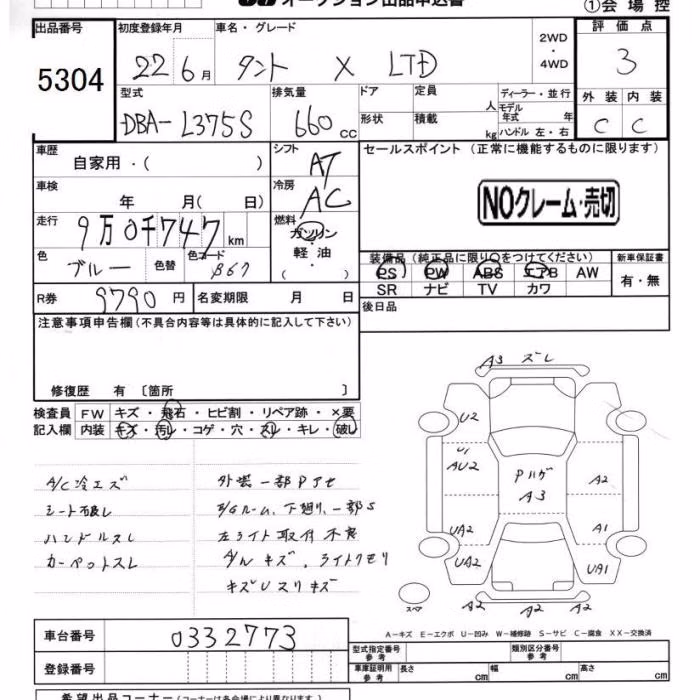 オークション出品申込書
①会場控
出品番号 5304
初度登録年月 22年6月
車名・グレード タント X LTD
2WD・4WD
評価点 3
外装 C 内装 C
型式 DBA-L375S
排気量 660 cc
ドア 形状
定員 人
積載 kg
ディーラー・並行
モデル年式 年
ハンドル 左・右
車歴 自家用・( )
シフト AT
セールスポイント (正常に機能するものに限ります)
NOクレーム・売切
車検 年 月( 日)
冷房 AC
走行 9万0千747 km
燃料 ガソリン・軽油・( )
色 ブルー 色替 色コード B67
装備品 (純正品に限り○をつけてください)
新車保証書 有・無
PS PW ABS エアB AW
SR ナビ TV カワ
R券 9790 円
名変期限 月 日
後日品
注意事項申告欄 (不具合内容等は具体的に記入して下さい)
修復歴 有 〔箇所 〕
検査員記入欄
FW キズ・飛石・ヒビ割・リペア跡・×要
内装 キズ・汚レ・コゲ・穴・スレ・キレ・破レ
A/C冷エズ
シート破レ
ハンドルスレ
カーペットスレ
外装一部Pアセ
E/Gルーム、下廻り、一部S
左ライト取付不良
A/W キズ、ライトクモリ
キズUスリキズ
A3 ズレ
U2
U1
AU2
Pハゲ
A3
A2
UA2
A1
UA2
UA1
A2 A2 A2
スペア
A-キズ E-エクボ U-凹み W-補修跡 S-サビ C-腐食 XX-交換済
車台番号 0332773
登録番号
型式指定番号 参考
類別区分番号 参考
車庫証明用 参考 長さ cm 幅 cm 高さ cm
希望出品コーナー (コーナーは各会場により異なります。)